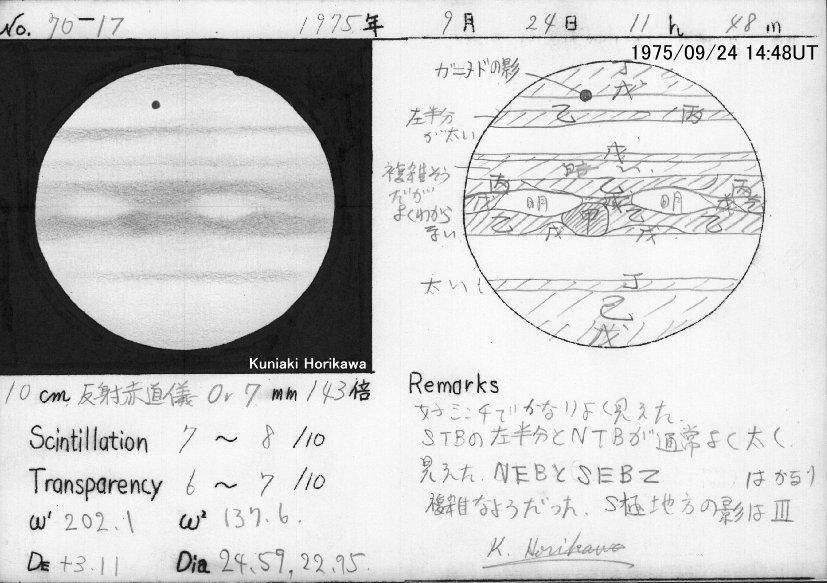 No. 70-17 1975年 9月 24日 11h 48m
1975/09/24 14:48UT
ガニメドの影
丁
戊
乙 丙
左半分
が太い
戊
暗
複雑そう
だが
よくわから
ない
丙 乙 丙
戊 明 明 戊
乙 甲 乙 乙
戊 戊
太い
丁
己
戊
Kuniaki Horikawa
10 cm 反射赤道儀 Or 7 mm 143倍
Scintillation 7 ~ 8 /10
Transparency 6 ~ 7 /10
ω¹ 202.1 ω² 137.6.
DE +3.11 Dia 24.59, 22.95.
Remarks
好シーイングでかなりよく見えた.
STBの左半分とNTBが通常よく太く
見えた. NEBとSEBZ はかなり
複雑なようだった. S極地方の影はIII
K. Horikawa